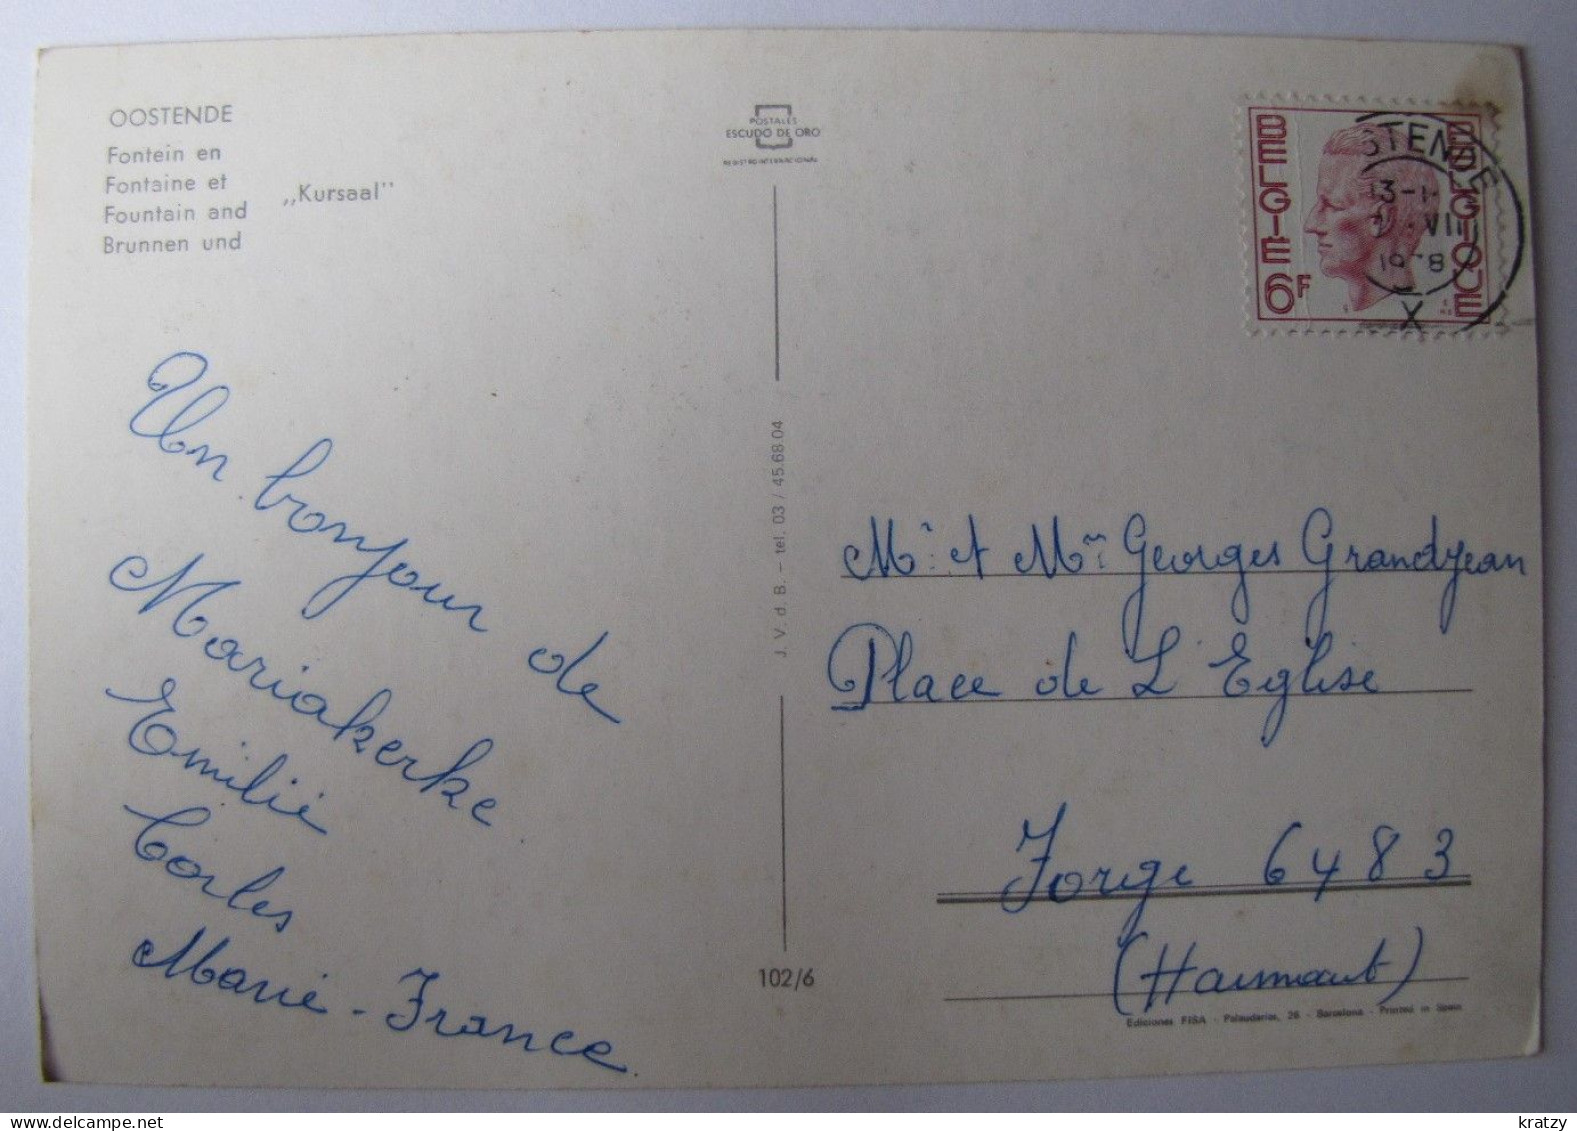 OOSTENDE
Fontein en
Fontaine et
Fountain and
Brunnen und
„Kursaal”
POSTALES
ESCUDO DE ORO
REGISTRO INTERNACIONAL
BELGIE
BELGIQUE
6F
STENDE
VIII
1978
X
Un bonjour de
Mariakerke
Emilie
Carles
Marie-France
J. V. d. B. – tel. 03 / 45.68.04
102/6
Mr et Mme Georges Grandjean
Place de L Eglise
Forge 6483
(Hainaut)
Ediciones FISA - Palaudarias, 26 - Barcelona - Printed in Spain
kratzy